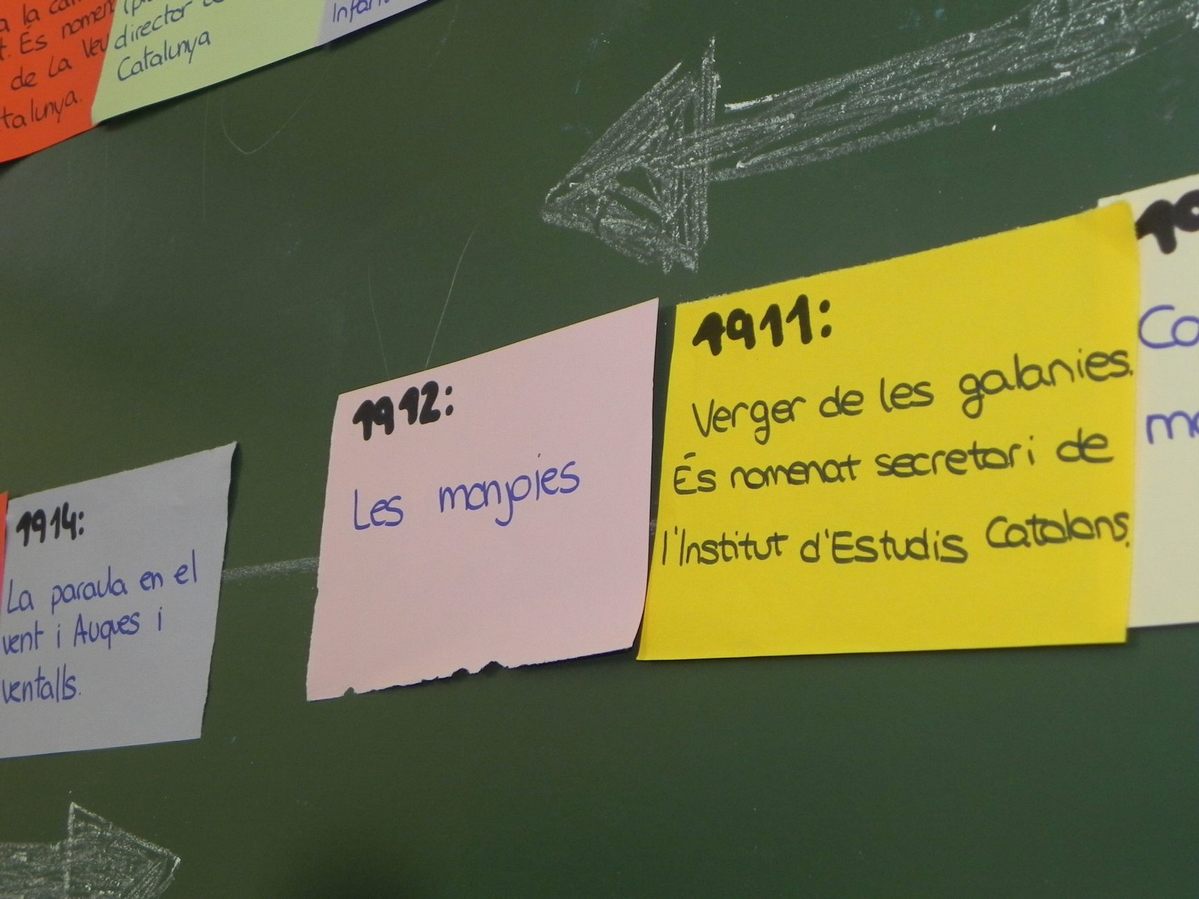 a la
t. És nomen
de La Veu
talunya.
director
Catalunya
1914:
La paraula en el
vent i Auques i
ventalls.
1912:
Les monjoies
1911:
Verger de les galanies.
És nomenat secretari de
l'Institut d'Estudis Catalans.
19
Co